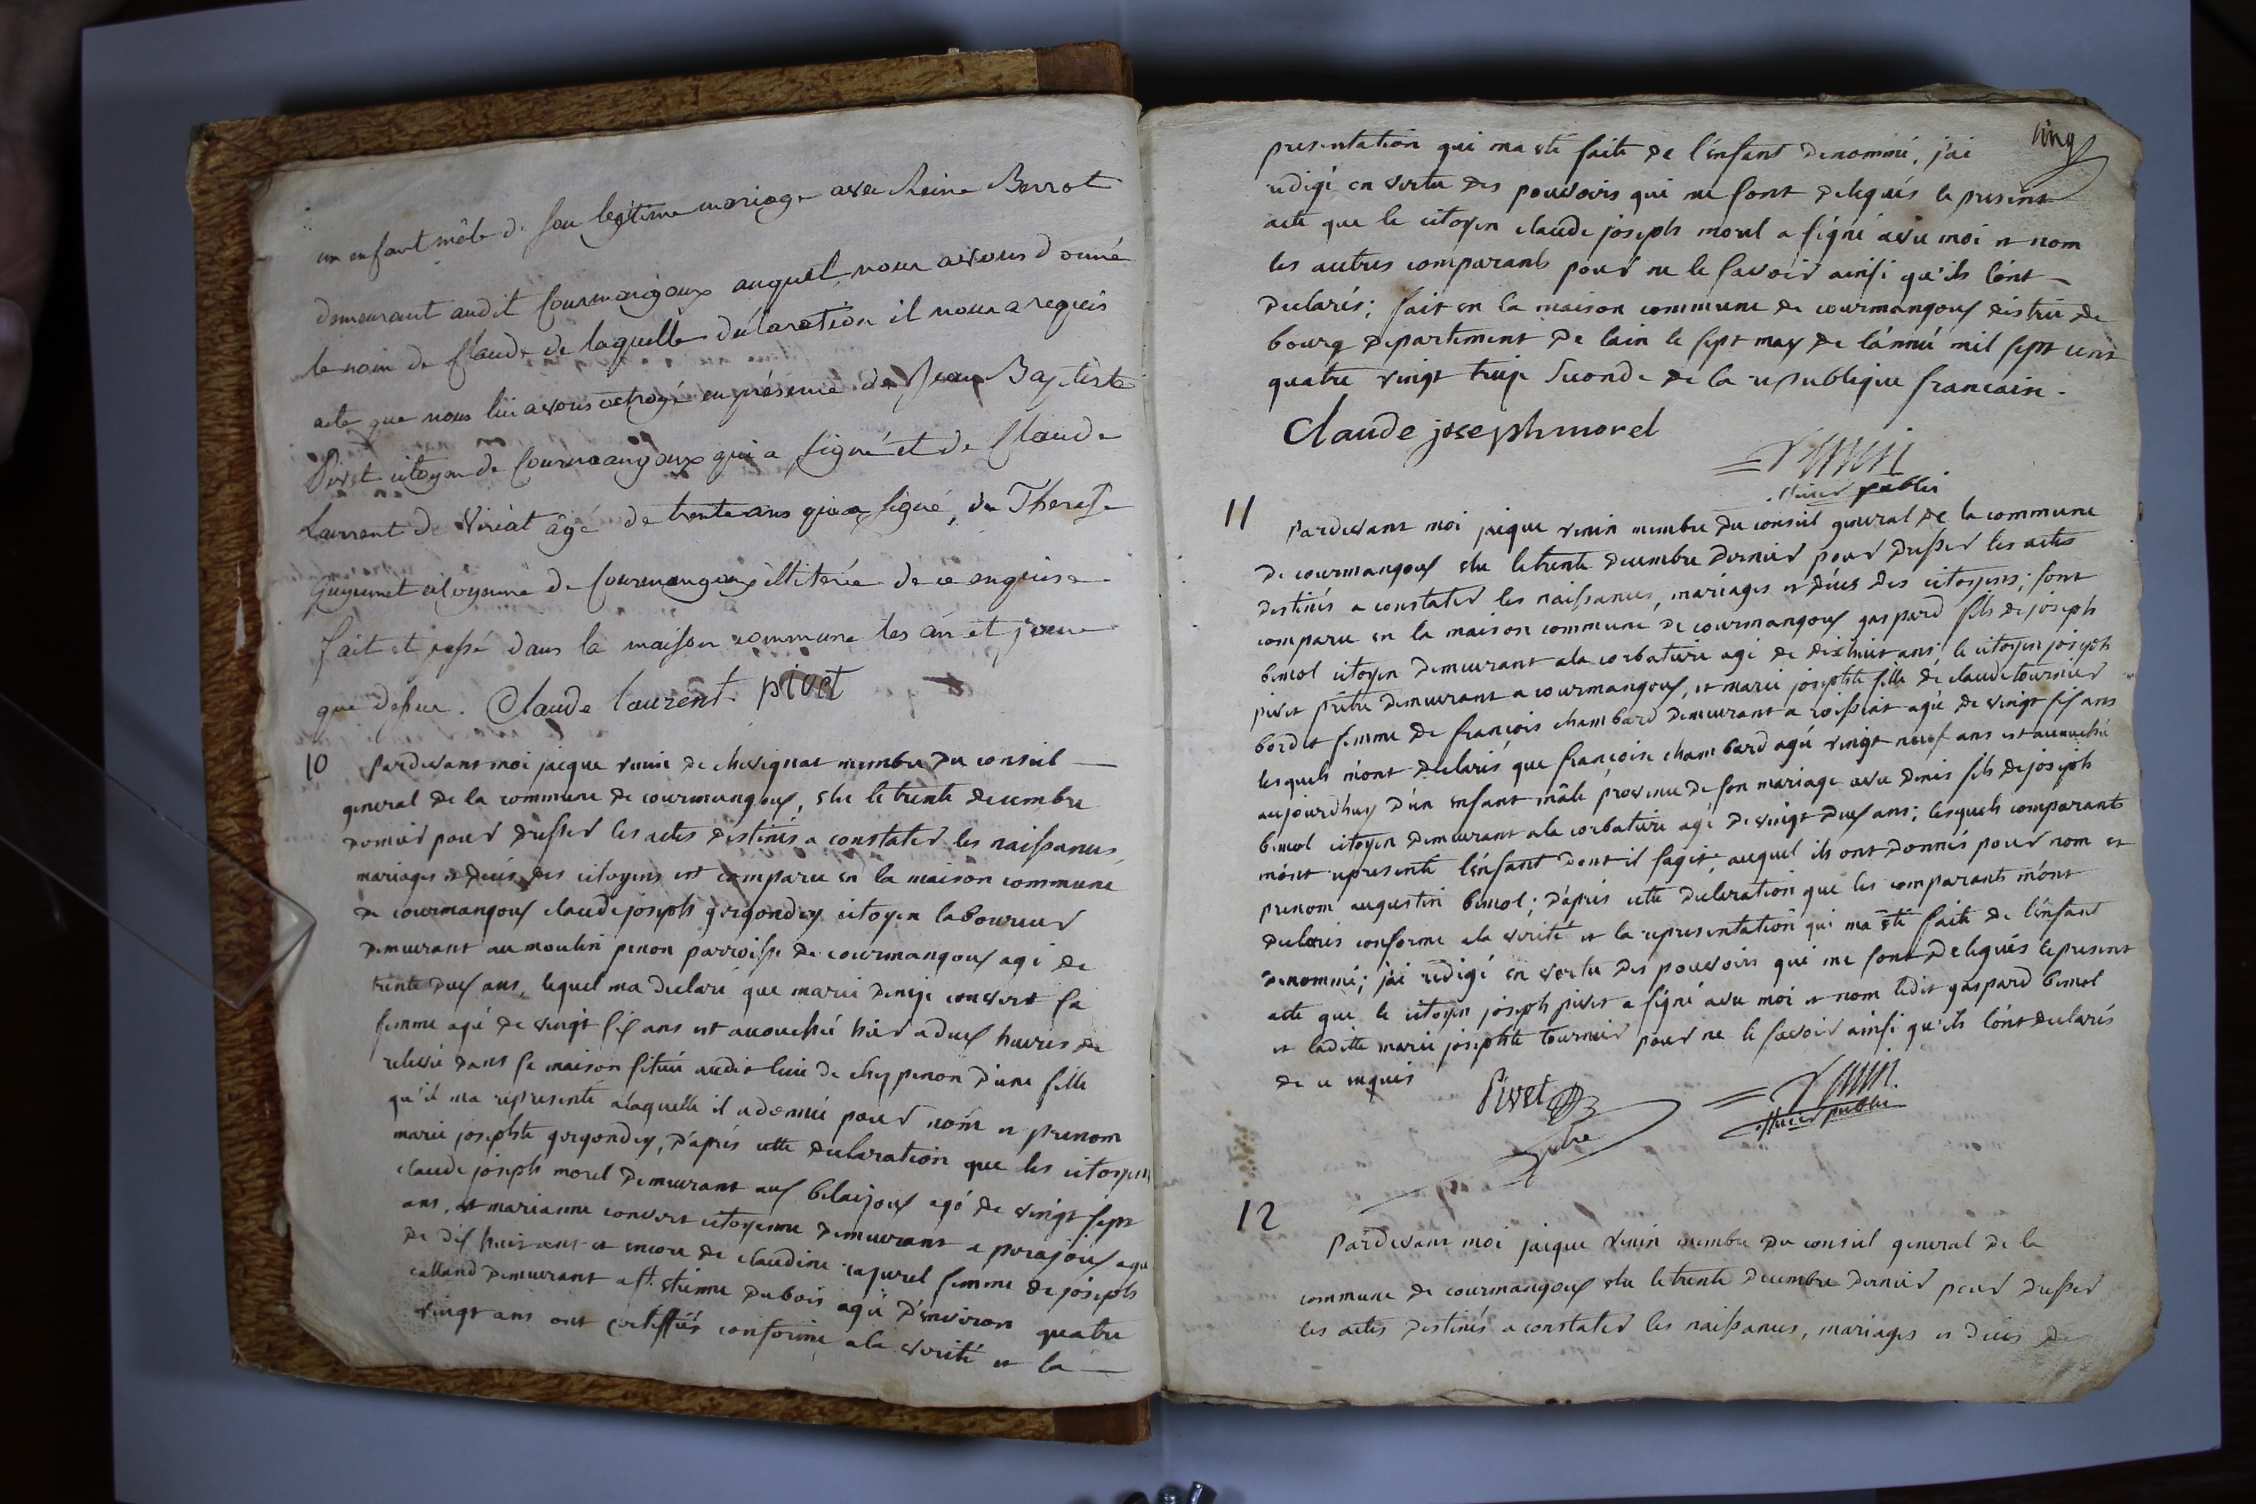 un enfant mâle de son legitime mariage avec Reine Berrot
demeurant audit Courmangoux auquel nous avons donné
le nom de Claude de laquelle déclaration il nous a requis
acte que nous lui avons octroyé en présence de Jean Baptiste
Pivet citoyen de Courmangoux qui a signé et de Claude
Laurent de Viriat âgé de trente ans qui a signé, de Therese
citoyenne de Courmangoux illiterée de ce enquise
fait et passé dans la maison commune les an et jour
que dessus. Claude laurent pivet
10 Pardevant moi jacque venin de chevignat membre du conseil
general de la commune de courmangoux, elu le trente decembre
dernier pour dresser les actes destinés a constater les naissances,
mariages et décés des citoyens est comparu en la maison commune
de courmangoux claude joseph gorgondey citoyen laboureur
demeurant au moulin penon parroisse de courmangoux agé de
trente deux ans, lequel ma declaré que marie denise convert sa
femme agé de vingt six ans est accouchée hier a deux heures de
relevé dans sa maison située audit lieu de chez penon d'une fille
qu'il ma représenté a laquelle il a donné pour nom et prenom
marie josephte gorgondey, d'aprés cette declaration que les citoyens
claude joseph morel demeurant aux belaijoux agé de vingt sept
ans, et marianne convert citoyenne demeurant a perajoux agé
de dix huit ans et encore de claudine cajurel femme de joseph
calland demeurant a st. etienne du bois agé d'environ quatre
vingt ans ont certifiés conforme a la verité et la
cinq
presentation qui ma eté faite de l'enfant denommé, j'ai
redigé en vertu des pouvoirs qui me sont delegués le present
acte que le citoyen claude joseph morel a signé avec moi et nom
les autres comparants pour ne le savoir ainsi qu'ils l'ont
declarés; fait en la maison commune de courmangoux distric de
bourg departement de lain le sept may de l'année mil sept cent
quatre vingt treize seconde de la republique francaise.
Claude joseph morel
Venin
officier public
11
Pardevant moi jacque venin membre du conseil general de la commune
de courmangoux elu le trente decembre dernier pour dresser les actes
destinés a constater les naissances, mariages et décés des citoyens; sont
comparu en la maison commune de courmangoux gaspard fils de joseph
bemol citoyen demeurant a la corbatiere agé de dixhuit ans; le citoyen joseph
pivet prêtre demeurant a courmangoux, et marie josephte fille de claude tournier
bordet femme de françois chambard demeurant a roissiat agé de vingt six ans
lesquels m'ont declarés que françoise chambard agé vingt neuf ans est accouchée
aujourdhuy d'un enfant mâle provenu de son mariage avec denis fils de joseph
bemol citoyen demeurant a la corbatiere agé de vingt deux ans; lesquels comparants
m'ont representé l'enfant dont il sagit auquel ils ont donnés pour nom et
prenom augustin bemol; d'aprés cette declaration que les comparants m'ont
declarés conforme a la verité et la representation qui ma eté faite de l'enfant
denommé; j'ai redigé en vertu des pouvoirs qui me sont delegués le present
acte que le citoyen joseph pivet a signé avec moi et nom ledit gaspard bemol
et laditte marie josephte tournier pour ne le savoir ainsi qu'ils l'ont declarés
de ce enquis
Pivet
Venin
officier public
12
Pardevant moi jacque venin membre du conseil general de la
commune de courmangoux elu le trente decembre dernier pour dresser
les actes destinés a constater les naissances, mariages et décés de